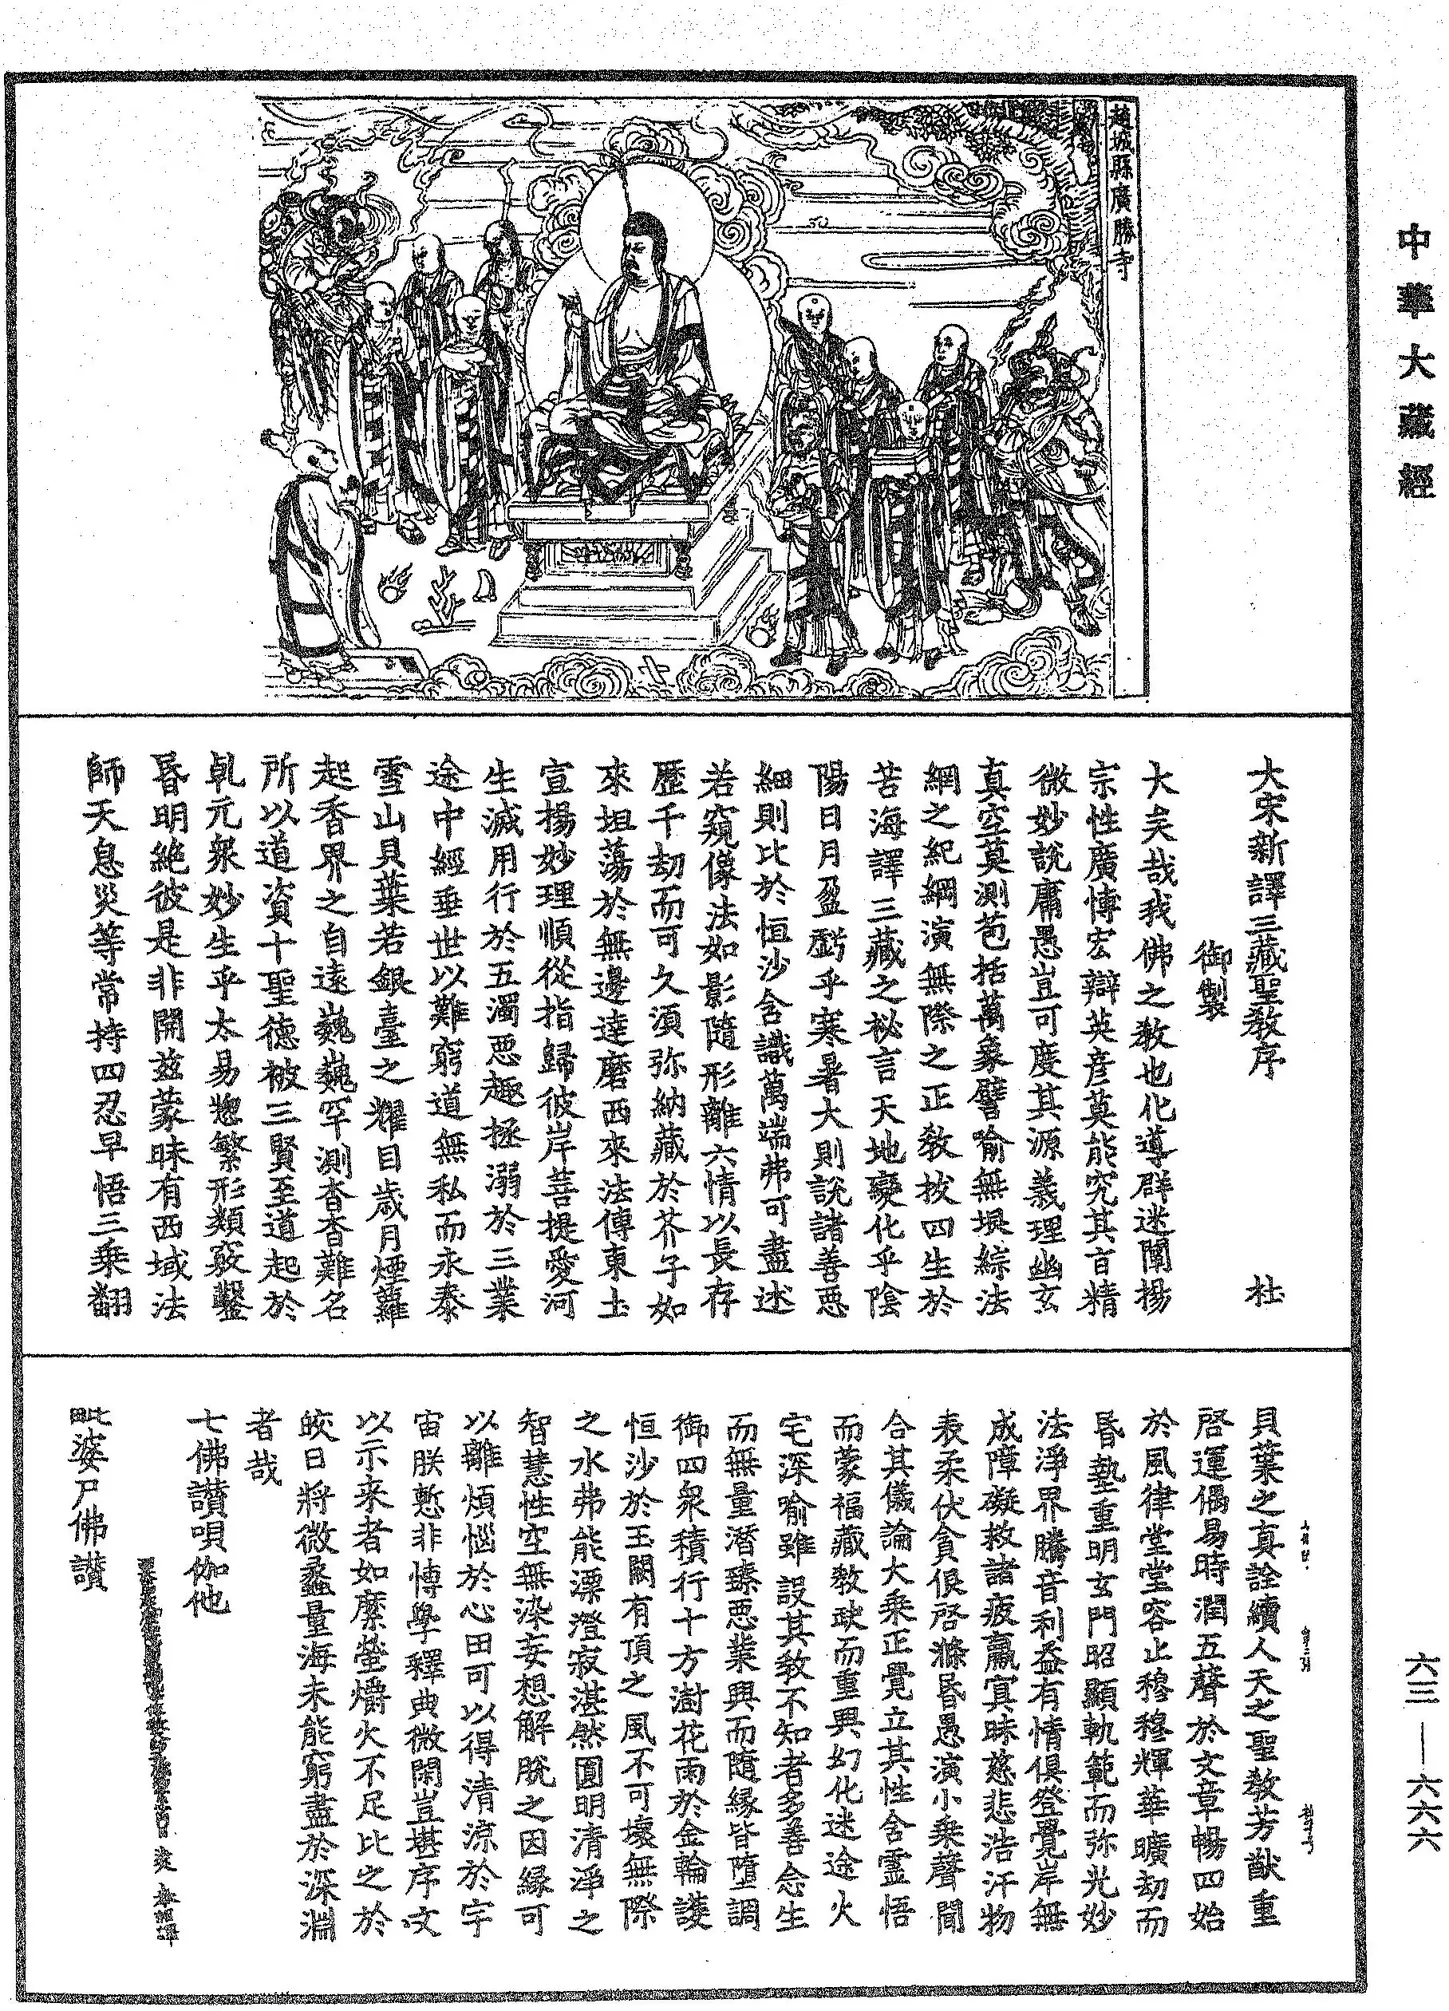 中華大藏經
趙城縣廣勝寺
大宋新譯三藏聖教序 杜
御製
大矣哉我佛之教也化導群迷闡揚
宗性廣博宏辯英彥莫能究其旨精
微妙說庸愚豈可度其源義理幽玄
真空莫測苞括萬象譬喻無垠綜法
網之紀綱演無際之正教拔四生於
苦海譯三藏之祕言天地變化乎陰
陽日月盈虧乎寒暑大則說諸善惡
細則比於恒沙含識萬端弗可盡述
若窺像法如影隨形離六情以長存
歷千劫而可久須弥納藏於芥子如
來坦蕩於無邊達磨西來法傳東土
宣揚妙理順從指歸彼岸菩提愛河
生滅用行於五濁惡趣拯溺於三業
途中經垂世以難窮道無私而永泰
雪山貝葉若銀臺之耀目歲月煙蘿
起香界之自遠巍巍罕測杳杳難名
所以道資十聖德被三賢至道起於
乹元衆妙生乎太易惣繁形類竅鑿
昏明絶彼是非開茲蒙昧有西域法
師天息災等常持四忍早悟三乗翻
貝葉之真詮續人天之聖教芳猷重
啓運偶昜時潤五聲於文章暢四始
於風律堂堂容止穆穆輝華曠劫而
昏墊重明玄門昭顯軌範而弥光妙
法淨界騰音利益有情俱登覺岸無
成障礙救諸疲羸㝠昧慈悲浩汗物
表柔伏貪佷啓滌昏愚演小乗聲聞
合其儀論大乗正覺立其性含靈悟
而蒙福藏教缺而重興幻化迷途火
宅深喻雖設其教不知者多善念生
而無量潛臻惡業興而隨緣皆墮調
御四衆積行十方澍花雨於金輪護
恒沙於玉闕有頂之風不可壞無際
之水弗能漂澄寂湛然圓明清淨之
智慧性空無染妄想解脫之因緣可
以離煩惱於心田可以得清涼於宇
宙朕慙非博學釋典微閑豈堪序文
以示来者如縻螢爝火不足比之於
皎日將微蠡量海未能窮盡於深淵
者哉
七佛讃唄伽他
毗婆尸佛讃
六三—六六六